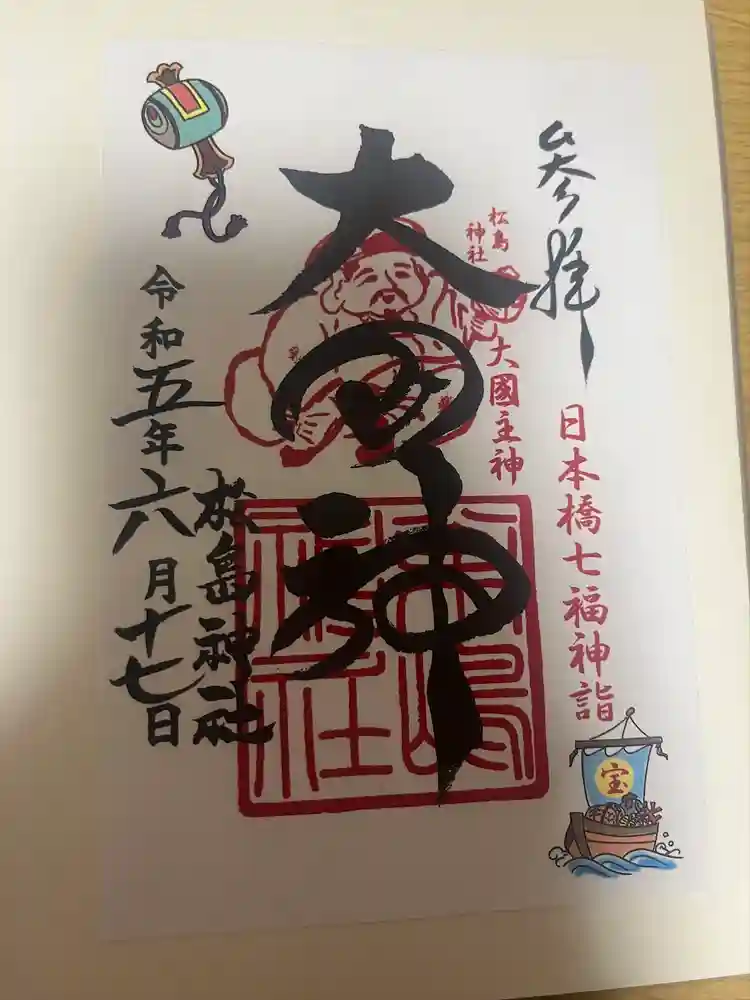 参拝
日本橋七福神詣
松島
神社
大國主神
大国神
松島神社
松嶋神社
令和五年六月十七日
宝